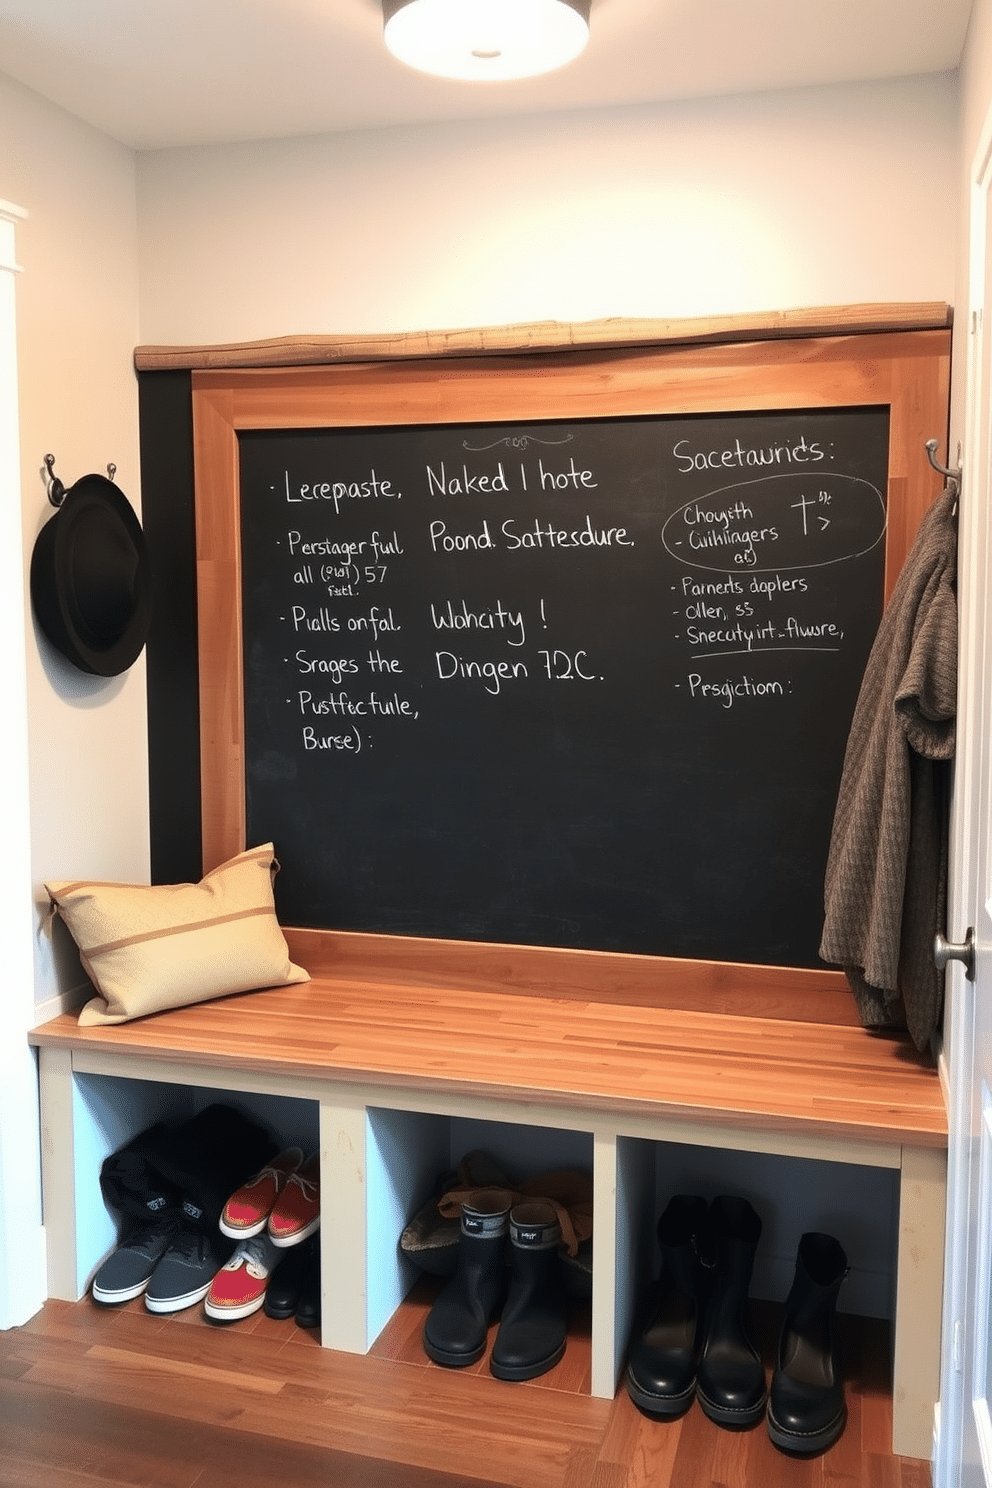 - Lecepaste,
- Perstager ful
all 57
- Pialls onfal.
- Srages the
- Pustfectule,
Burse) :
Naked I hote
Poond. Sattesdure,
Wohcity !
Dingen 72C.
Sacetauricts:
Choygith
- Cuihlingers
- Parnerts doplers
- Oller, 53
- Snecatyirt-fluwsre,
- Presgictiom: